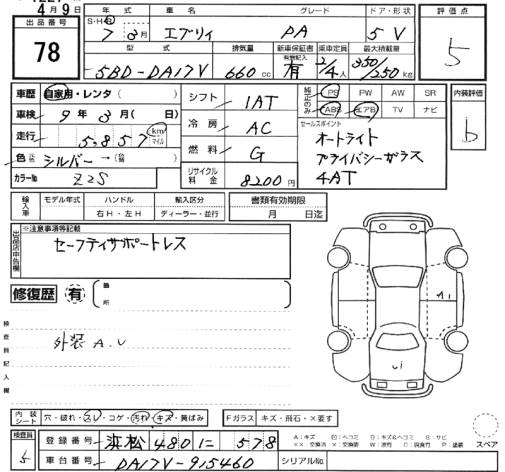 4月9日
出品番号
78
年式 車名 グレード ドア・形状
S・H・R 7年3月 エブリィ PA 5 V
型式 排気量 新車保証書 乗車定員 最大積載量
有無記入
5BD-DA17V 660cc 有 2/4人 350/250kg
評価点
5
車歴 自家用・レンタ( )
車検 9年3月( 日)
走行 5,857 km マイル
色 シルバー→
カラーNo Z2S
シフト 1AT
冷房 AC
燃料 G
リサイクル料金 8200円
純正のみ PS PW AW SR
ABS エアB TV ナビ
セールスポイント
オートライト
プライバシーガラス
4AT
内装評価
b
輸入車 モデル年式 ハンドル 輸入区分
右H・左H ディーラー・並行
書類有効期限
月 日迄
出品店申告欄
※注意事項等記載
セーフティサポートレス
修復歴 有 箇所
検査員記入欄
外装A、U
A1
U1
内装シート 穴・破れ・スレ・コゲ・汚れ・キズ・黄ばみ
Fガラス キズ・飛石・×要す
検査員
5
登録番号 浜松 480 に 578
車台番号 DA17V-915460
シリアルNo.
A:キズ
スペア